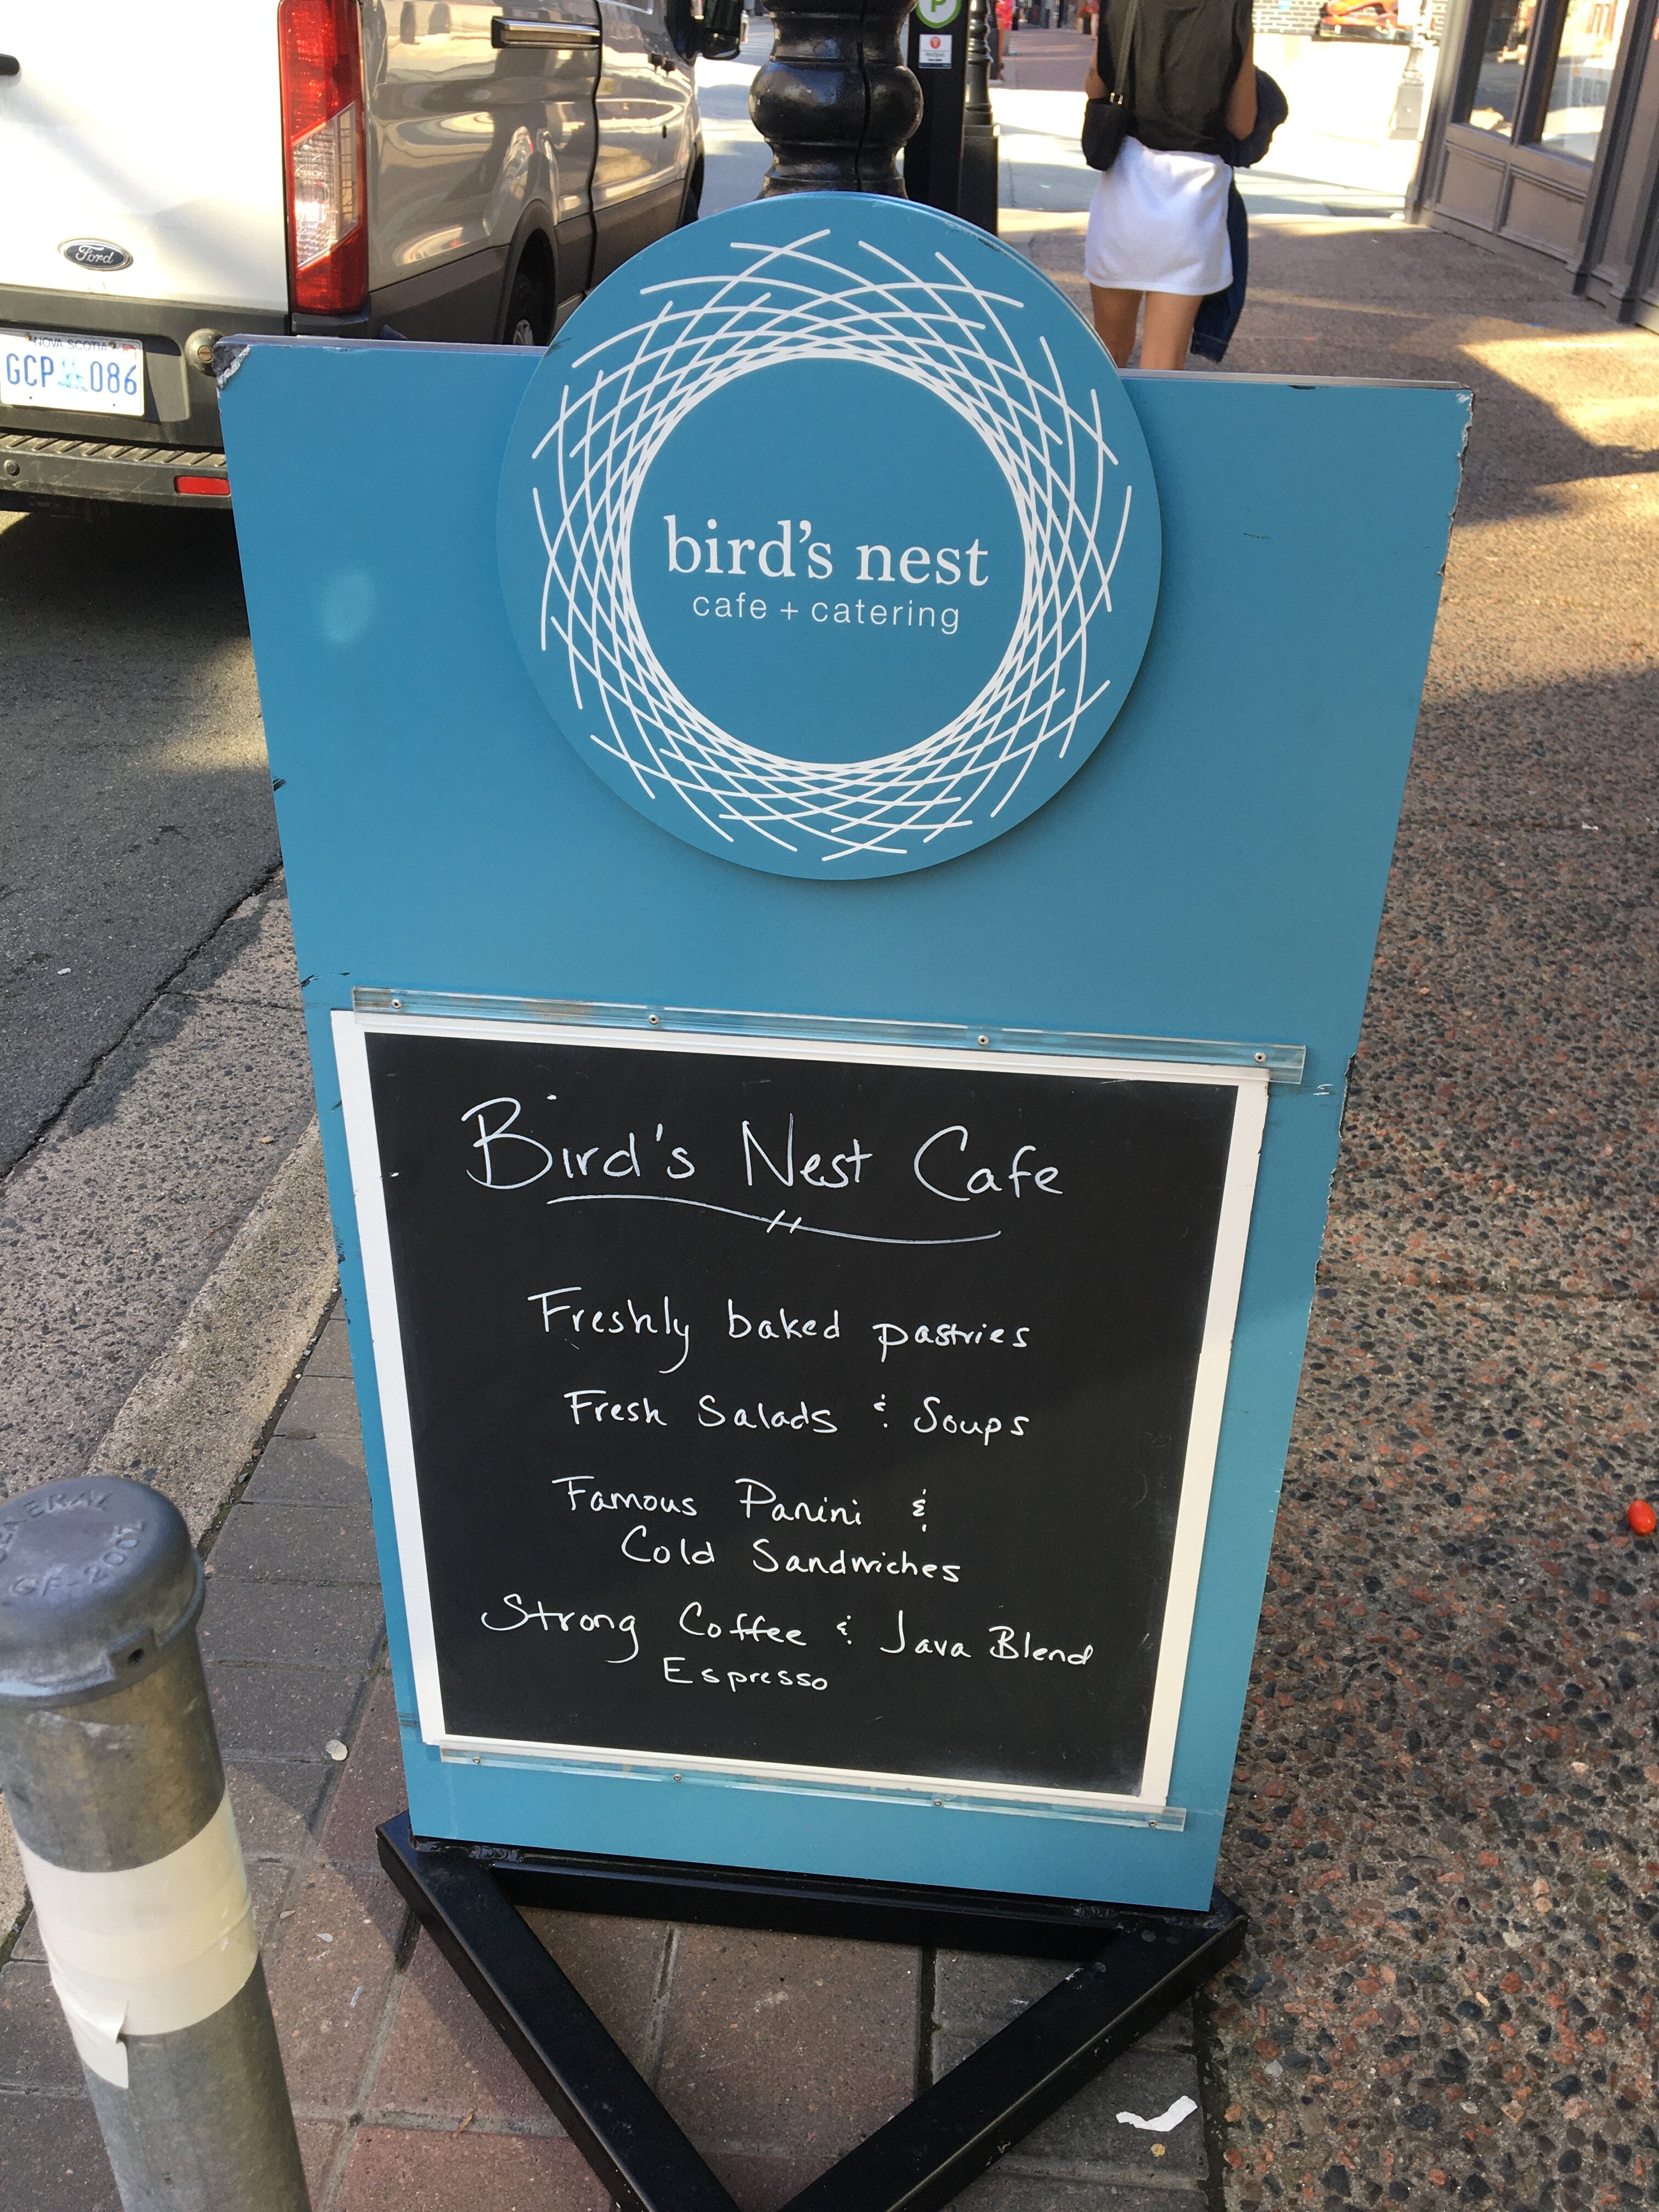 P
Ford
NOVA SCOTIA
GCP 086
bird's nest
cafe + catering
Bird's Nest Cafe
Freshly baked pastries
Fresh Salads & Soups
Famous Panini &
Cold Sandwiches
Strong Coffee & Java Blend
Espresso